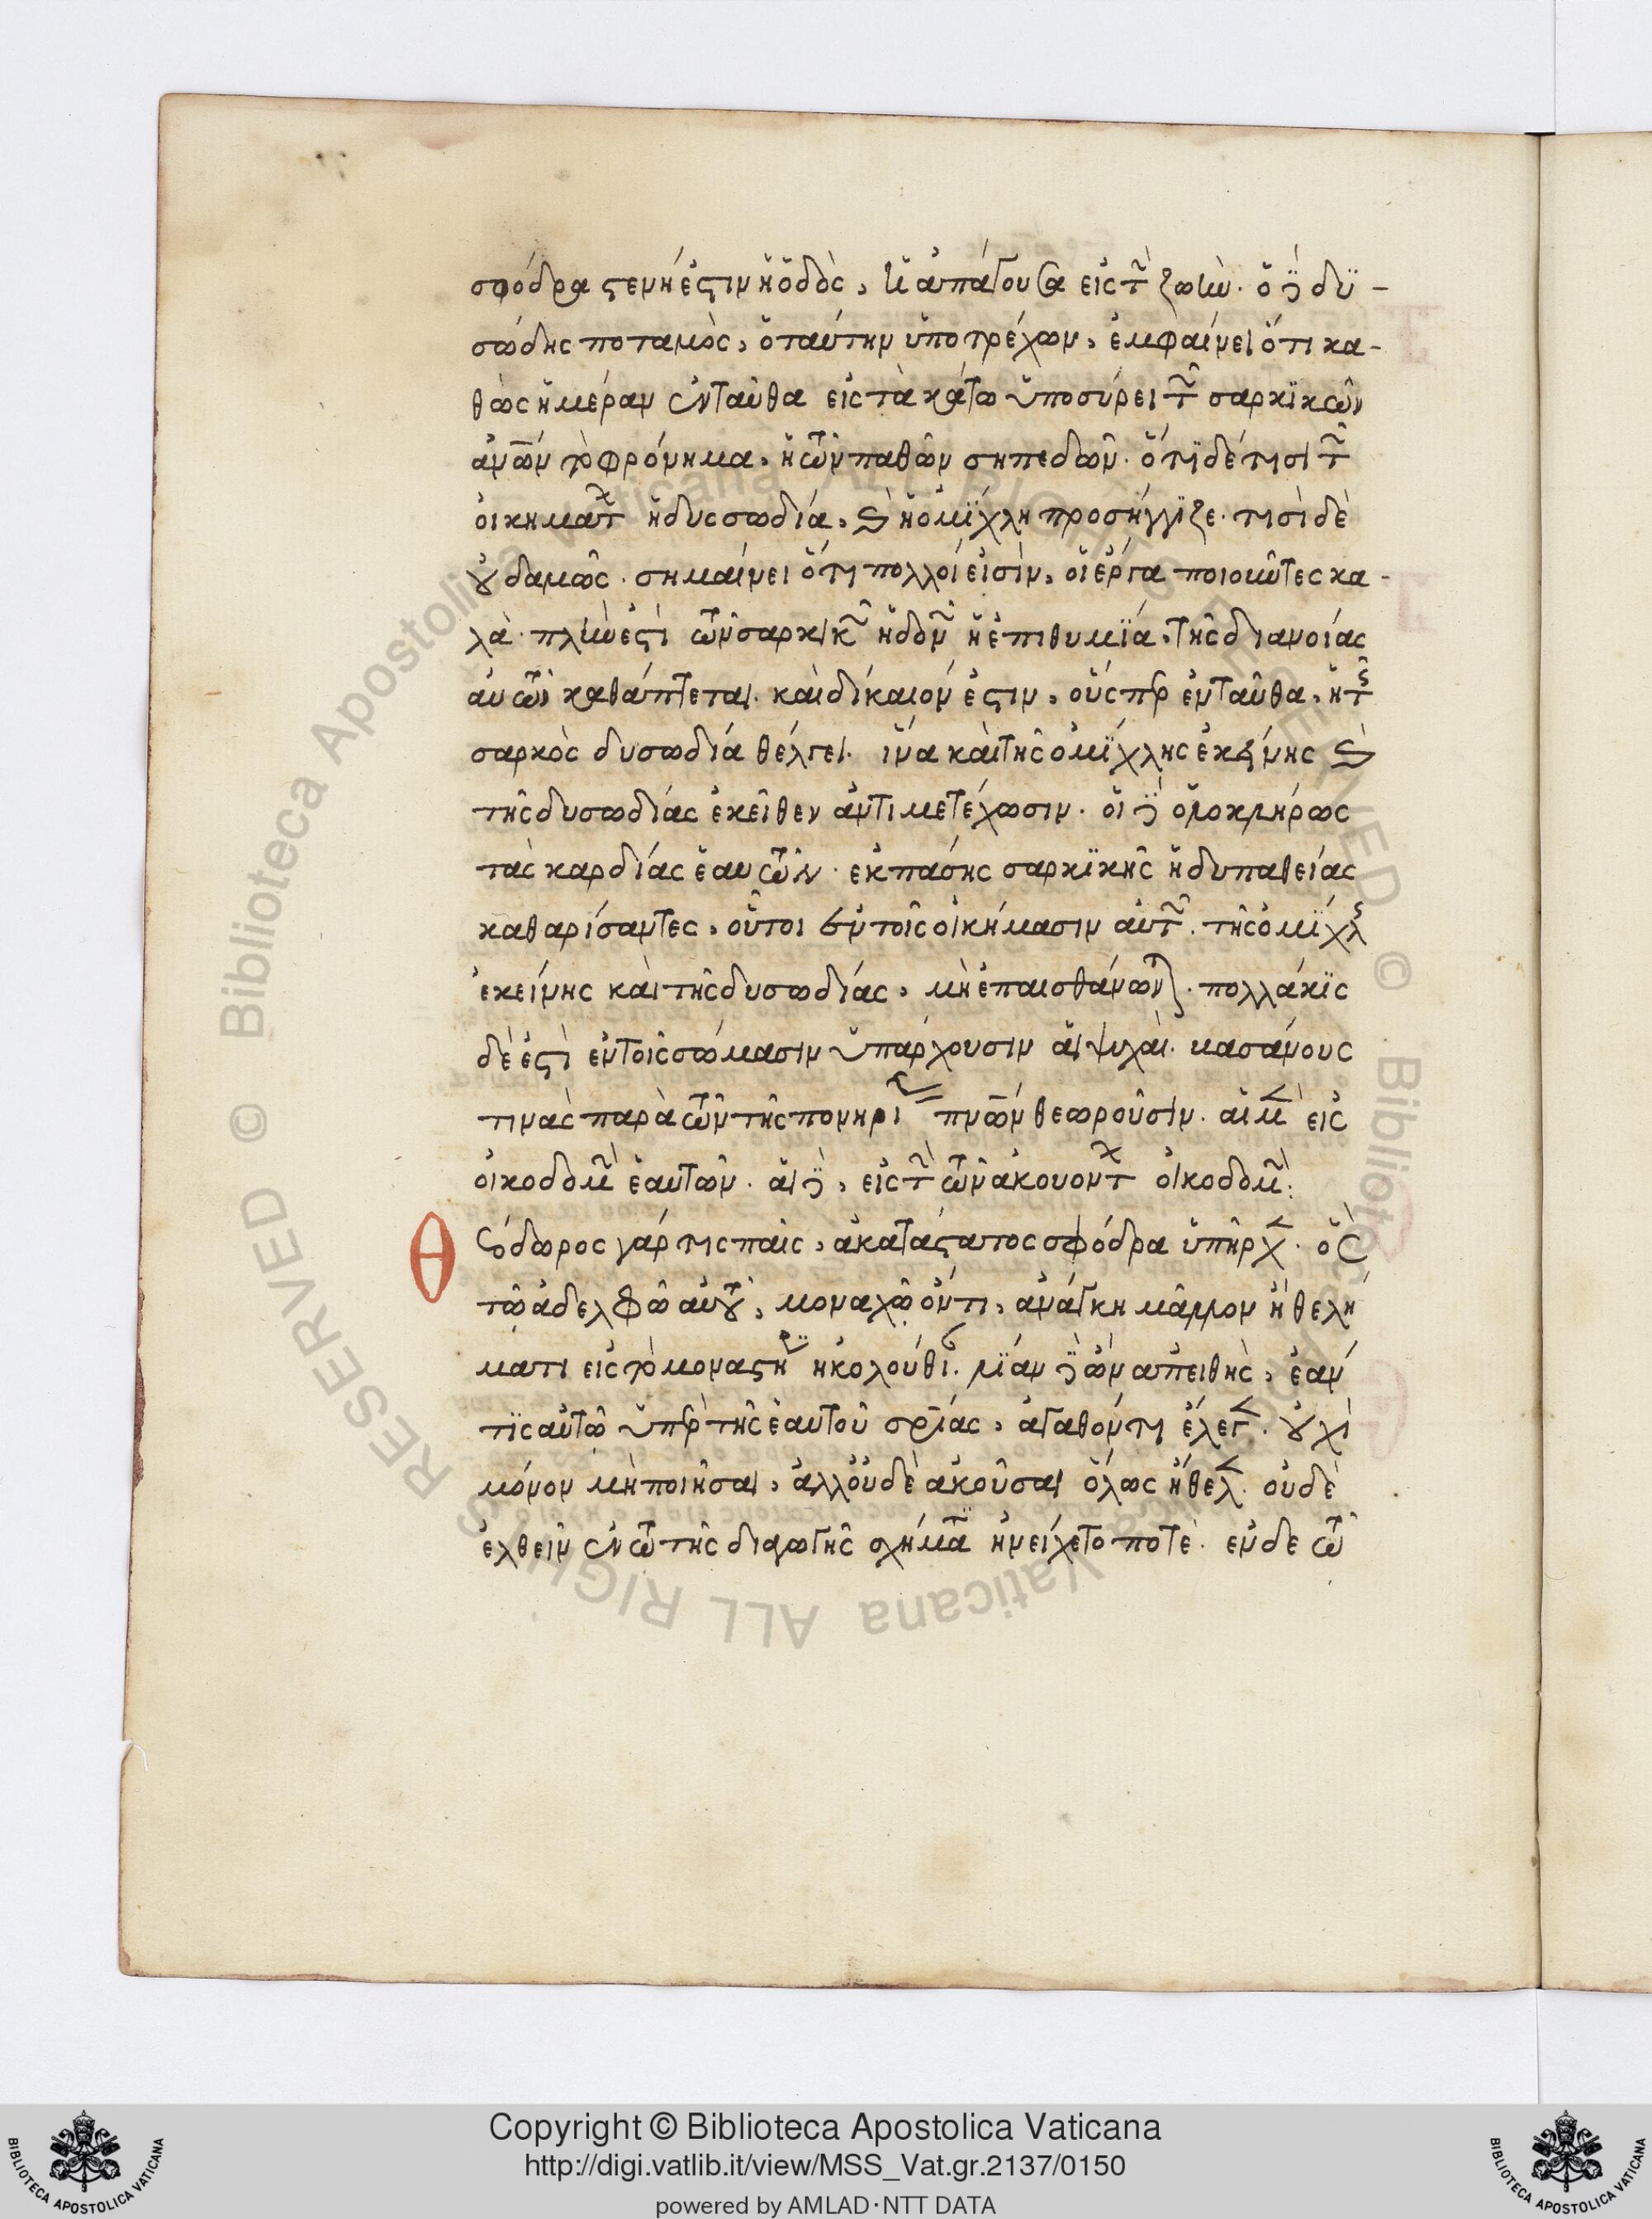 σφόδρα στενή ἐστιν ἡ ὁδὸς, ἡ ἀπάγουσα εἰς τὴν ζωὴν. ὁ δὲ δυ-
σώδης ποταμὸς, ὁ ταύτην ὑποτρέχων, ἐμφαίνει ὅτι κα-
θ ὡς ἡμέραν ἐνταῦθα εἰς τὰ κάτω ὑποσύρει τῶν σαρκικῶν
ἀνῶν τὸ φρόνημα, ἡ τῶν παθῶν σηπεδών. ὅτι δέ τισι τῶν
οἰκημάτων ἡ δυσσωδία, καὶ ἡ ὁμίχλη προσήγγιζε. τισὶ δὲ
οὐδαμῶς. σημαίνει ὅτι πολλοί εἰσὶν, οἱ ἔργα ποιοῦντες κα-
λὰ. πλὴν ἐστὶ τῶν σαρκικῶν ἡδονῶν ἡ ἐπιθυμία, τῆς διανοίας
αὐτῶν καθάπτεται. καὶ δίκαιόν ἐστιν, οὕσπερ ἐνταῦθα, ἡ τῆς
σαρκὸς δυσωδία θέλγει. ἵνα καὶ τῆς ὁμίχλης ἐκείνης καὶ
τῆς δυσωδίας ἐκεῖθεν ἀντιμετέχωσιν. οἱ δὲ ὁλοκλήρως
τὰς καρδίας ἑαυτῶν. ἐκ πάσης σαρκικῆς ἡδυπαθείας
καθαρίσαντες, οὗτοι ἐν τοῖς οἰκήμασιν αὐτῶν. τῆς ὁμίχλης
ἐκείνης καὶ τῆς δυσωδίας, μὴ ἐπαισθάνωνται. πολλάκις
δὲ ἐστὶ ἐν τοῖς σώμασιν ὑπάρχουσιν αἱ ψυχαὶ. κασάνους
τινας παρὰ τῶν τῆς πονηρίας πνῶν θεωροῦσιν. αἱ μὲν εἰς
οἰκοδομὴν ἑαυτῶν. αἱ δὲ, εἰς τὴν τῶν ἀκουόντων οἰκοδομὴν:
Θεόδωρος γάρ τις παῖς, ἀκατάστατος σφόδρα ὑπῆρχεν. ὃς
τῷ ἀδελφῷ αὐτοῦ, μοναχῷ ὄντι, ἀνάγκη μᾶλλον ἢ θελή
ματι εἰς τὸ μοναστήριον ἠκολούθει. λίαν δὲ ὢν ἀπειθὴς, ἐάν
τις αὐτῷ ὑπὲρ τῆς ἑαυτοῦ σρίας, ἀγαθόν τι ἔλεγεν. οὐχὶ
μόνον μὴ ποιῆσαι, ἀλλ' οὐδὲ ἀκοῦσαι ὅλως ἤθελεν. οὐδὲ
ἐλθεῖν ἐν τῷ τῆς διαγωγῆς σχήματι ἠνείχετο ποτὲ. ἐν δε τῷ
Copyright © Biblioteca Apostolica Vaticana
http://digi.vatlib.it/view/MSS_Vat.gr.2137/0150
powered by AMLAD·NTT DATA